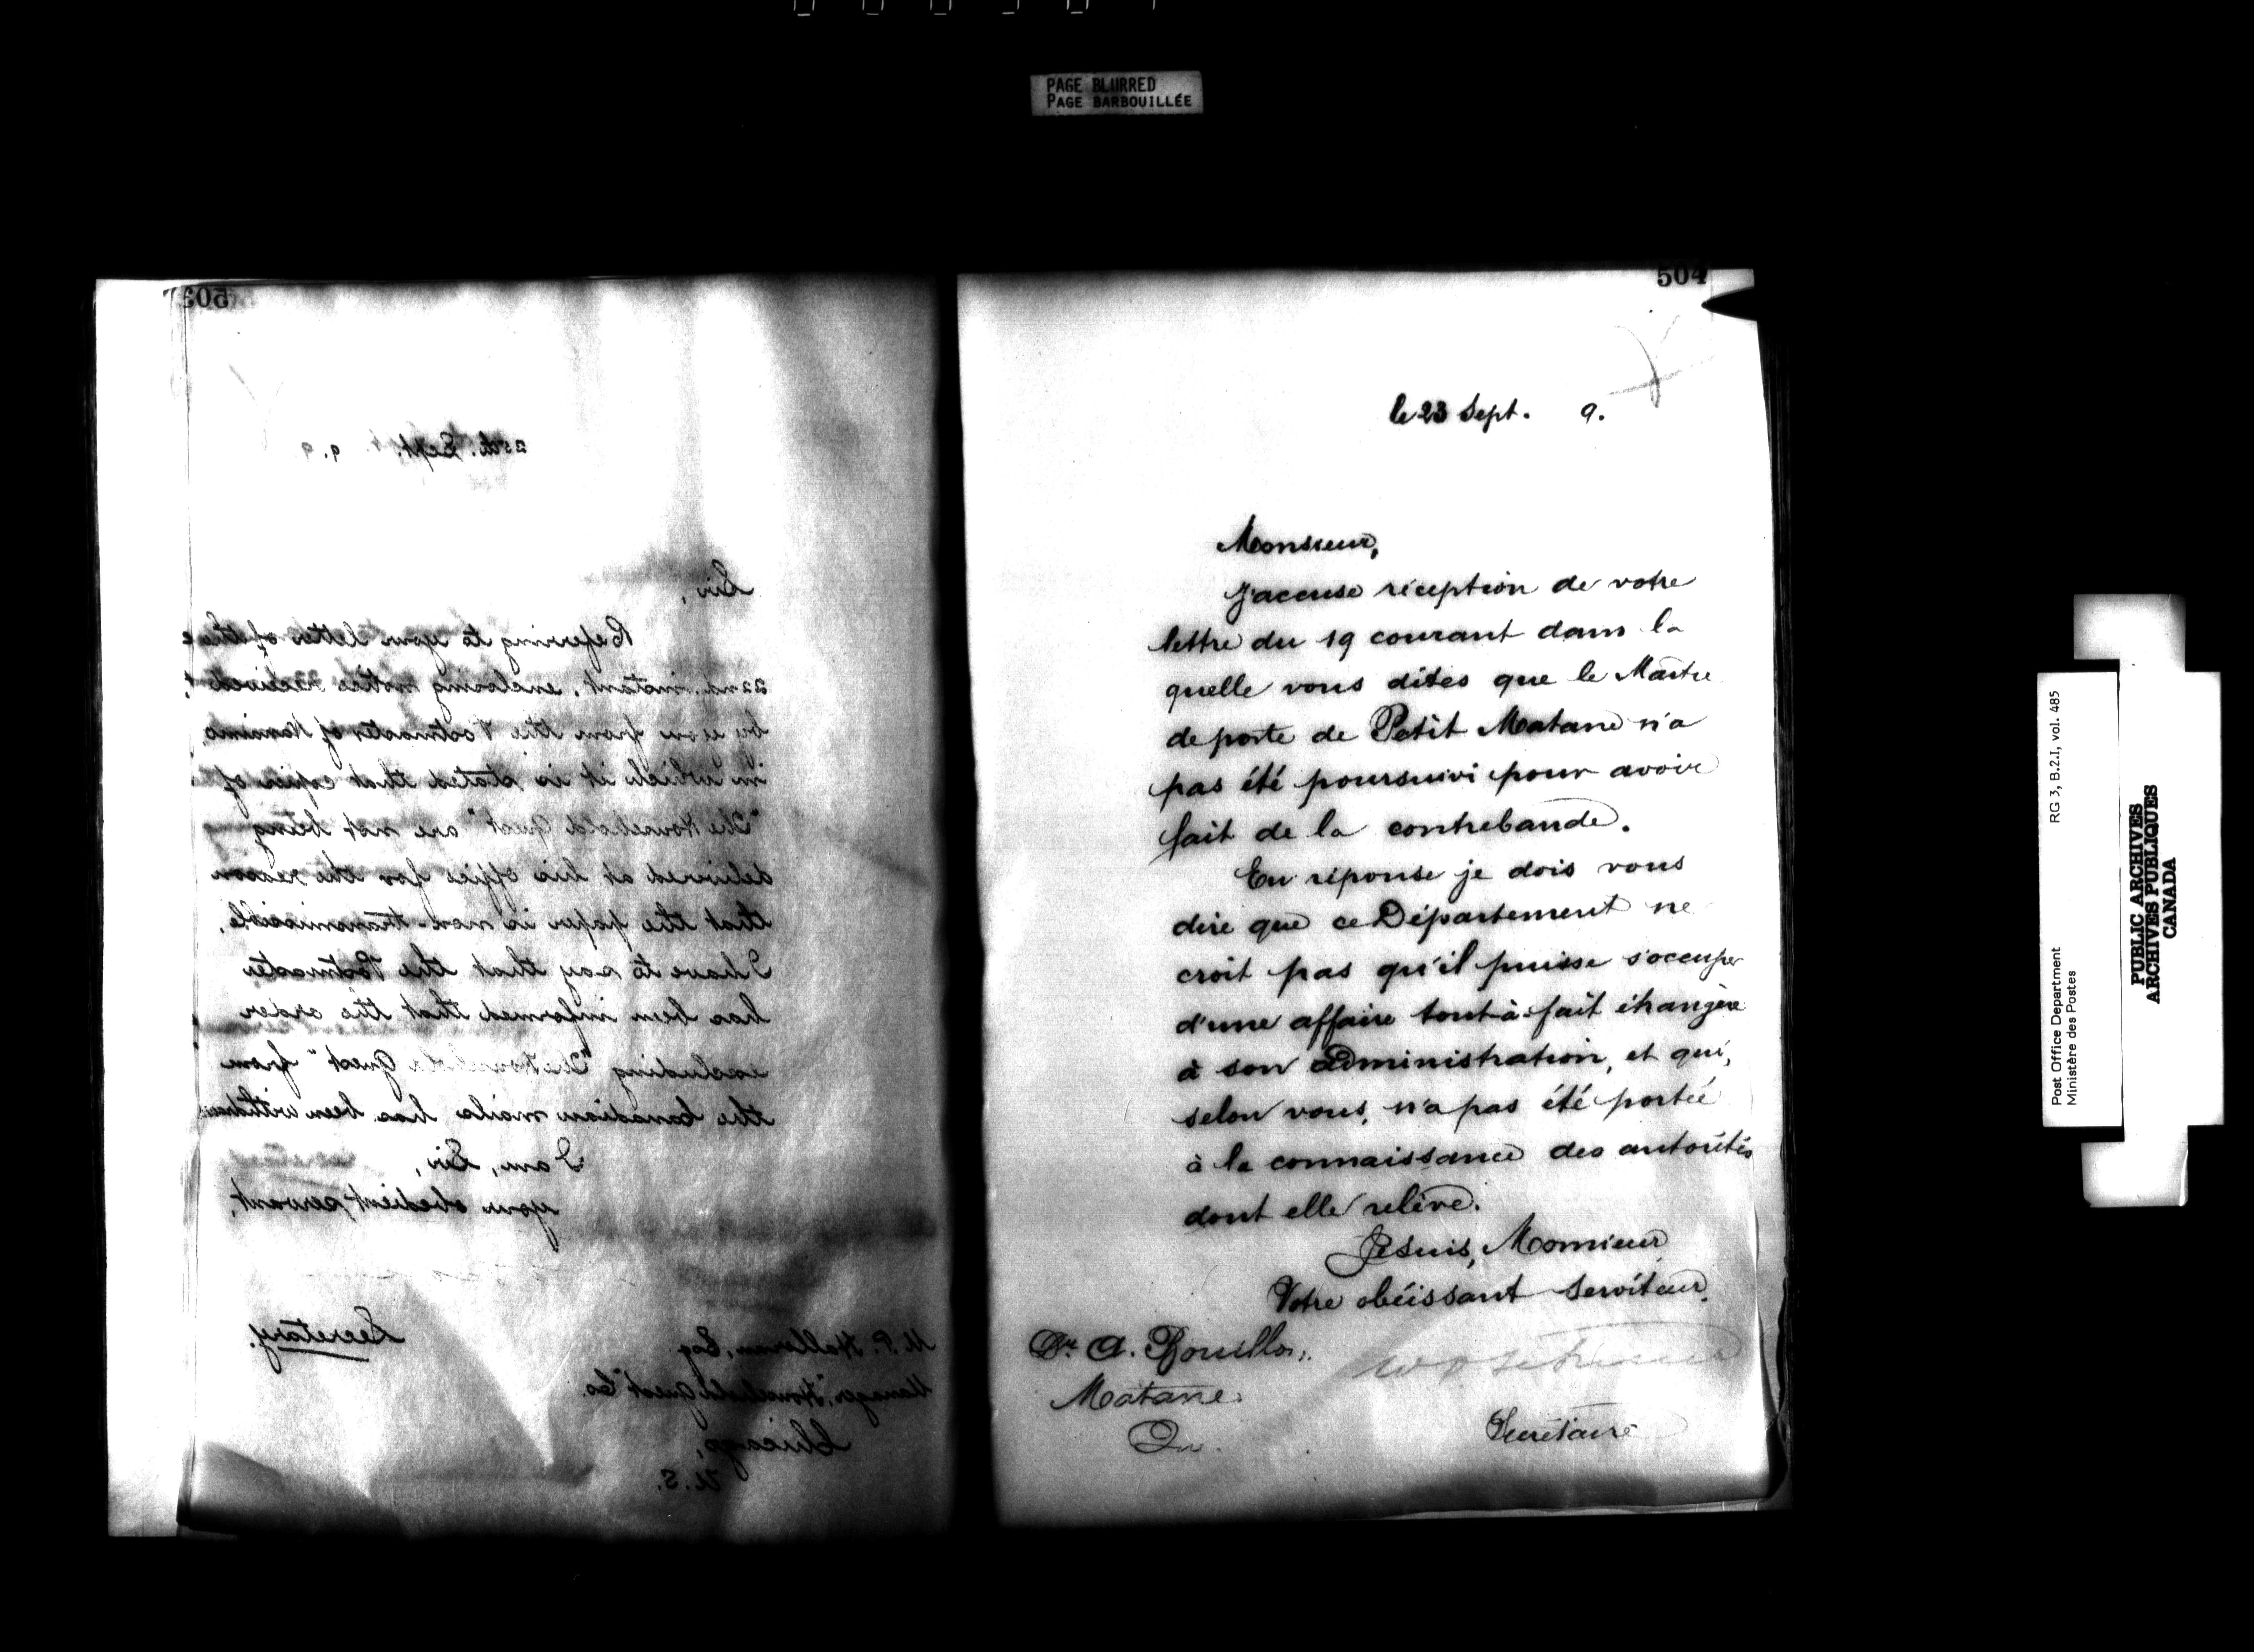 PAGE BLURRED
PAGE BARBOUILLÉE
503
25th. Sept. 9.9
Sir,
Referring to your letter of the
22nd. instant, enclosing notice received
by you from the Postmaster of Nanaimo
in which it is stated that copies of
"The Household Guest" are not being
delivered at his office for the reason
that the paper is non-transmissible,
I have to say that the Postmaster
has been informed that the order
excluding "The Household Guest" from
the Canadian mails has been withdrawn
I am, Sir,
your obedient servant,
Secretary.
M. P. Halloran, Esq
Manager, "Household Guest" Co.
Chicago,
U.S.
504
le 23 Sept. 9.
Monsieur,
J'accuse réception de votre
lettre du 19 courant dans la
quelle vous dites que le Maître
de poste de Petit Matane n'a
pas été poursuivi pour avoir
fait de la contrebande.
En réponse je dois vous
dire que ce Département ne
croit pas qu'il puisse s'occuper
d'une affaire tout-à-fait étrangère
à son administration, et qui,
selon vous, n'a pas été portée
à la connaissance des autorités
dont elle relève.
Je suis, Monsieur
Votre obéissant Serviteur.
Dr. A. Bouillon,
Matane.
Qu.
Secrétaire
Post Office Department
Ministère des Postes
RG 3, B.2.I, vol. 485
PUBLIC ARCHIVES
ARCHIVES PUBLIQUES
CANADA